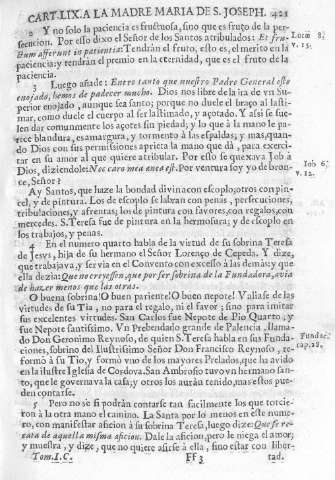 CART.LIX.A LA MADRE MARIA DE S. JOSEPH. 421
2 Y no solo la paciencia es fructuosa, sino que es fruto de la persecucion. Por esso dixo el Señor de los Santos atribulados: Et fructum afferunt in patientia: Tendràn el fruto, esto es, el merito en la paciencia; y tendràn el premio en la eternidad, que es el fruto de la paciencia.
Lucæ 8. v. 15.
3 Luego añade: Entre tanto que nuestro Padre General està enojado, hemos de padecer mucho. Dios nos libre de la ira de vn Superior enojado, aunque sea santo; porque no duele el braço al lastimar, como duele el cuerpo al ser lastimado, y açotado. Y assi se suelen dar comunmente los açotes sin piedad; y lo que à la mano le parece blandura, es amargura, y tormento à las espaldas; y mas, quando Dios con sus permissiones aprieta la mano que dà, para exercitar en su amor al que quiere atribular. Por esto se quexava Job à Dios, diziendole: Nec caro mea ænea est. Por ventura soy yo de bronce, Señor?
Job 6. v. 12.
Ay Santos, que haze la bondad divina con escoplo; otros con pincel, y de pintura. Los de escoplo se labran con penas, persecuciones, tribulaciones, y afrentas; los de pintura con favores, con regalos, con mercedes. S. Teresa fue de pintura en la hermosura; y de escoplo en los trabajos, y penas.
4 En el numero quarto habla de la virtud de su sobrina Teresa de Jesvs, hija de su hermano el Señor Lorenço de Cepeda. Y dize, que trabajava, y servia en el Convento con excesso à las demàs: y que ella dezia: Que no creyessen, que por ser sobrina de la Fundadora, avia de hazer menos que las otras.
O buena sobrina! O buen pariente! O buen nepote! Valiase de las virtudes de su Tia, no para el regalo, ni el favor; sino para imitar sus excelentes virtudes. San Carlos fue Nepote de Pio Quarto, y fue Nepote santissimo. Vn Prebendado grande de Palencia, llamado Don Geronimo Reynoso, de quien S. Teresa habla en sus Fundaciones, sobrino del Ilustrissimo Señor Don Francisco Reynoso, reformò à su Tio, y formò vno de los mayores Prelados, que ha avido en la ilustre Iglesia de Cordova. San Ambrosio tuvo vn hermano santo, que le governava la casa; y otros los auràn tenido, mas estos pueden contarse.
Fundac. cap. 28.
5 Pero no se si podràn contarse tan facilmente los que torcieron à la otra mano el camino. La Santa por lo menos en este numero, con manifestar aficion à su sobrina Teresa, luego dize: Que se recata de aquella misma aficion. Dale la aficion, pero le niega el amor; y muestra, y dize, que no quiere asirse à ella, sino estar con liber-
Tom. I. C. Ff 3 tad.